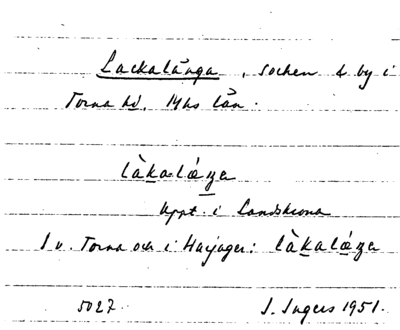 Lackalänga, socken & by i
Torna hd, Mhs län.
làkalǽŋa
Uppt. i Landskrona
I v. Torna och i Harjager: làkalǽŋa
5027. I. Ingers 1951.